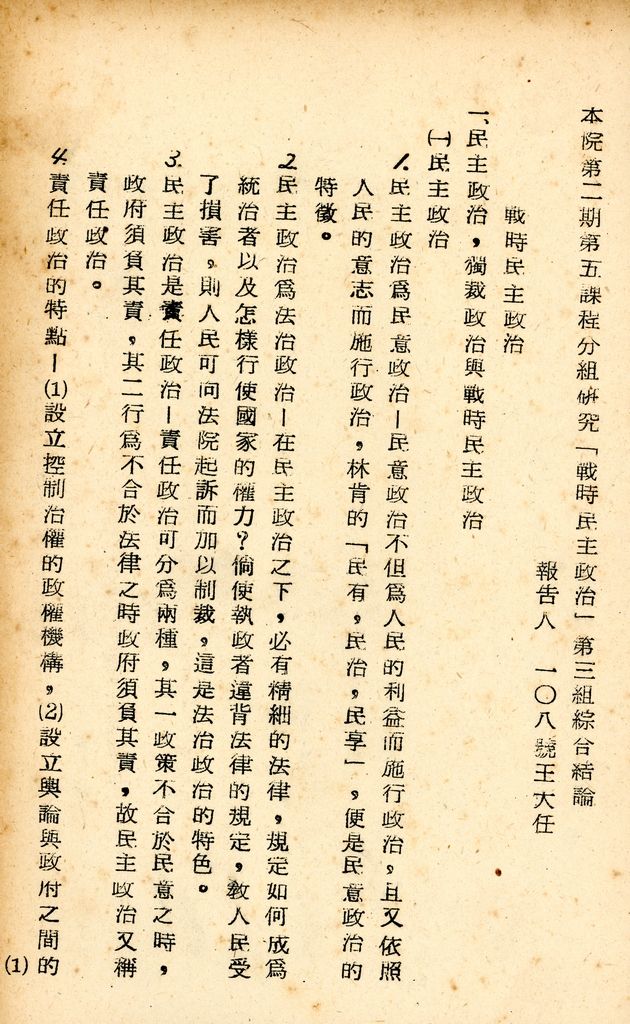 本院第二期第五課程分組研究「戰時民主政治」第三組綜合結論
報告人　一〇八號王大任
戰時民主政治
一、民主政治，獨裁政治與戰時民主政治
㈠民主政治
1.民主政治爲民意政治—民意政治不但爲人民的利益而施行政治，且又依照
人民的意志而施行政治，林肯的「民有，民治，民享」，便是民意政治的
特徵。
2.民主政治爲法治政治—在民主政治之下，必有精細的法律，規定如何成爲
統治者以及怎樣行使國家的權力？倘使執政者違背法律的規定，敎人民受
了損害，則人民可向法院起訴而加以制裁，這是法治政治的特色。
3.民主政治是責任政治—責任政治可分爲兩種，其一政策不合於民意之時，
政府須負其責，其二行爲不合於法律之時政府須負其責，故民主政治又稱
責任政治。
4.責任政治的特點—(1)設立控制治權的政權機構，(2)設立輿論與政府之間的
(1)